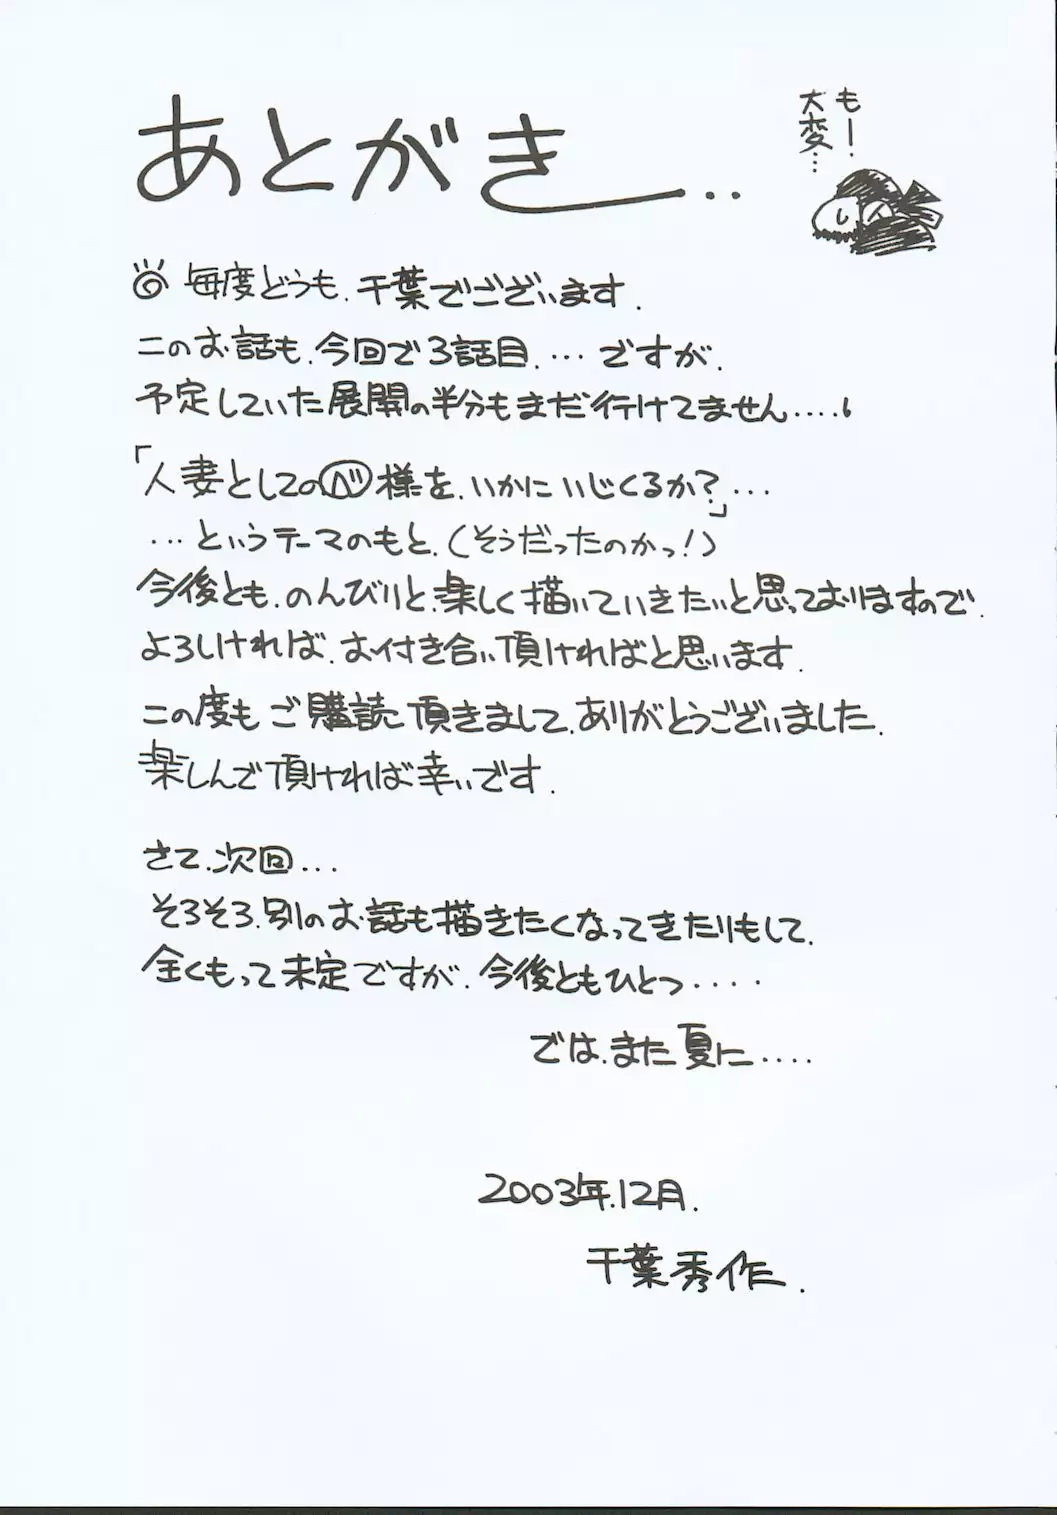 あとがき..
もー
大変…
◎ 毎度どうも、千葉でございます.
このお話も、今回で3話目、…ですが、
予定していた展開の半分もまだ行けてません….
「人妻としてのⓑ様を、いかにいじくるか?…」
…というテーマのもと、(そうだったのかっ!)
今後とも、のんびりと、楽しく描いていきたいと思っておりますので、
よろしければ、お付き合い頂ければと思います.
この度もご購読頂きまして、ありがとうございました.
楽しんで頂ければ幸いです.
さて、次回…
そろそろ、別のお話も描きたくなってきたりもして、
全くもって未定ですが、今後ともひとつ‥‥
では、また夏に‥‥
2003年.12月.
千葉秀作.